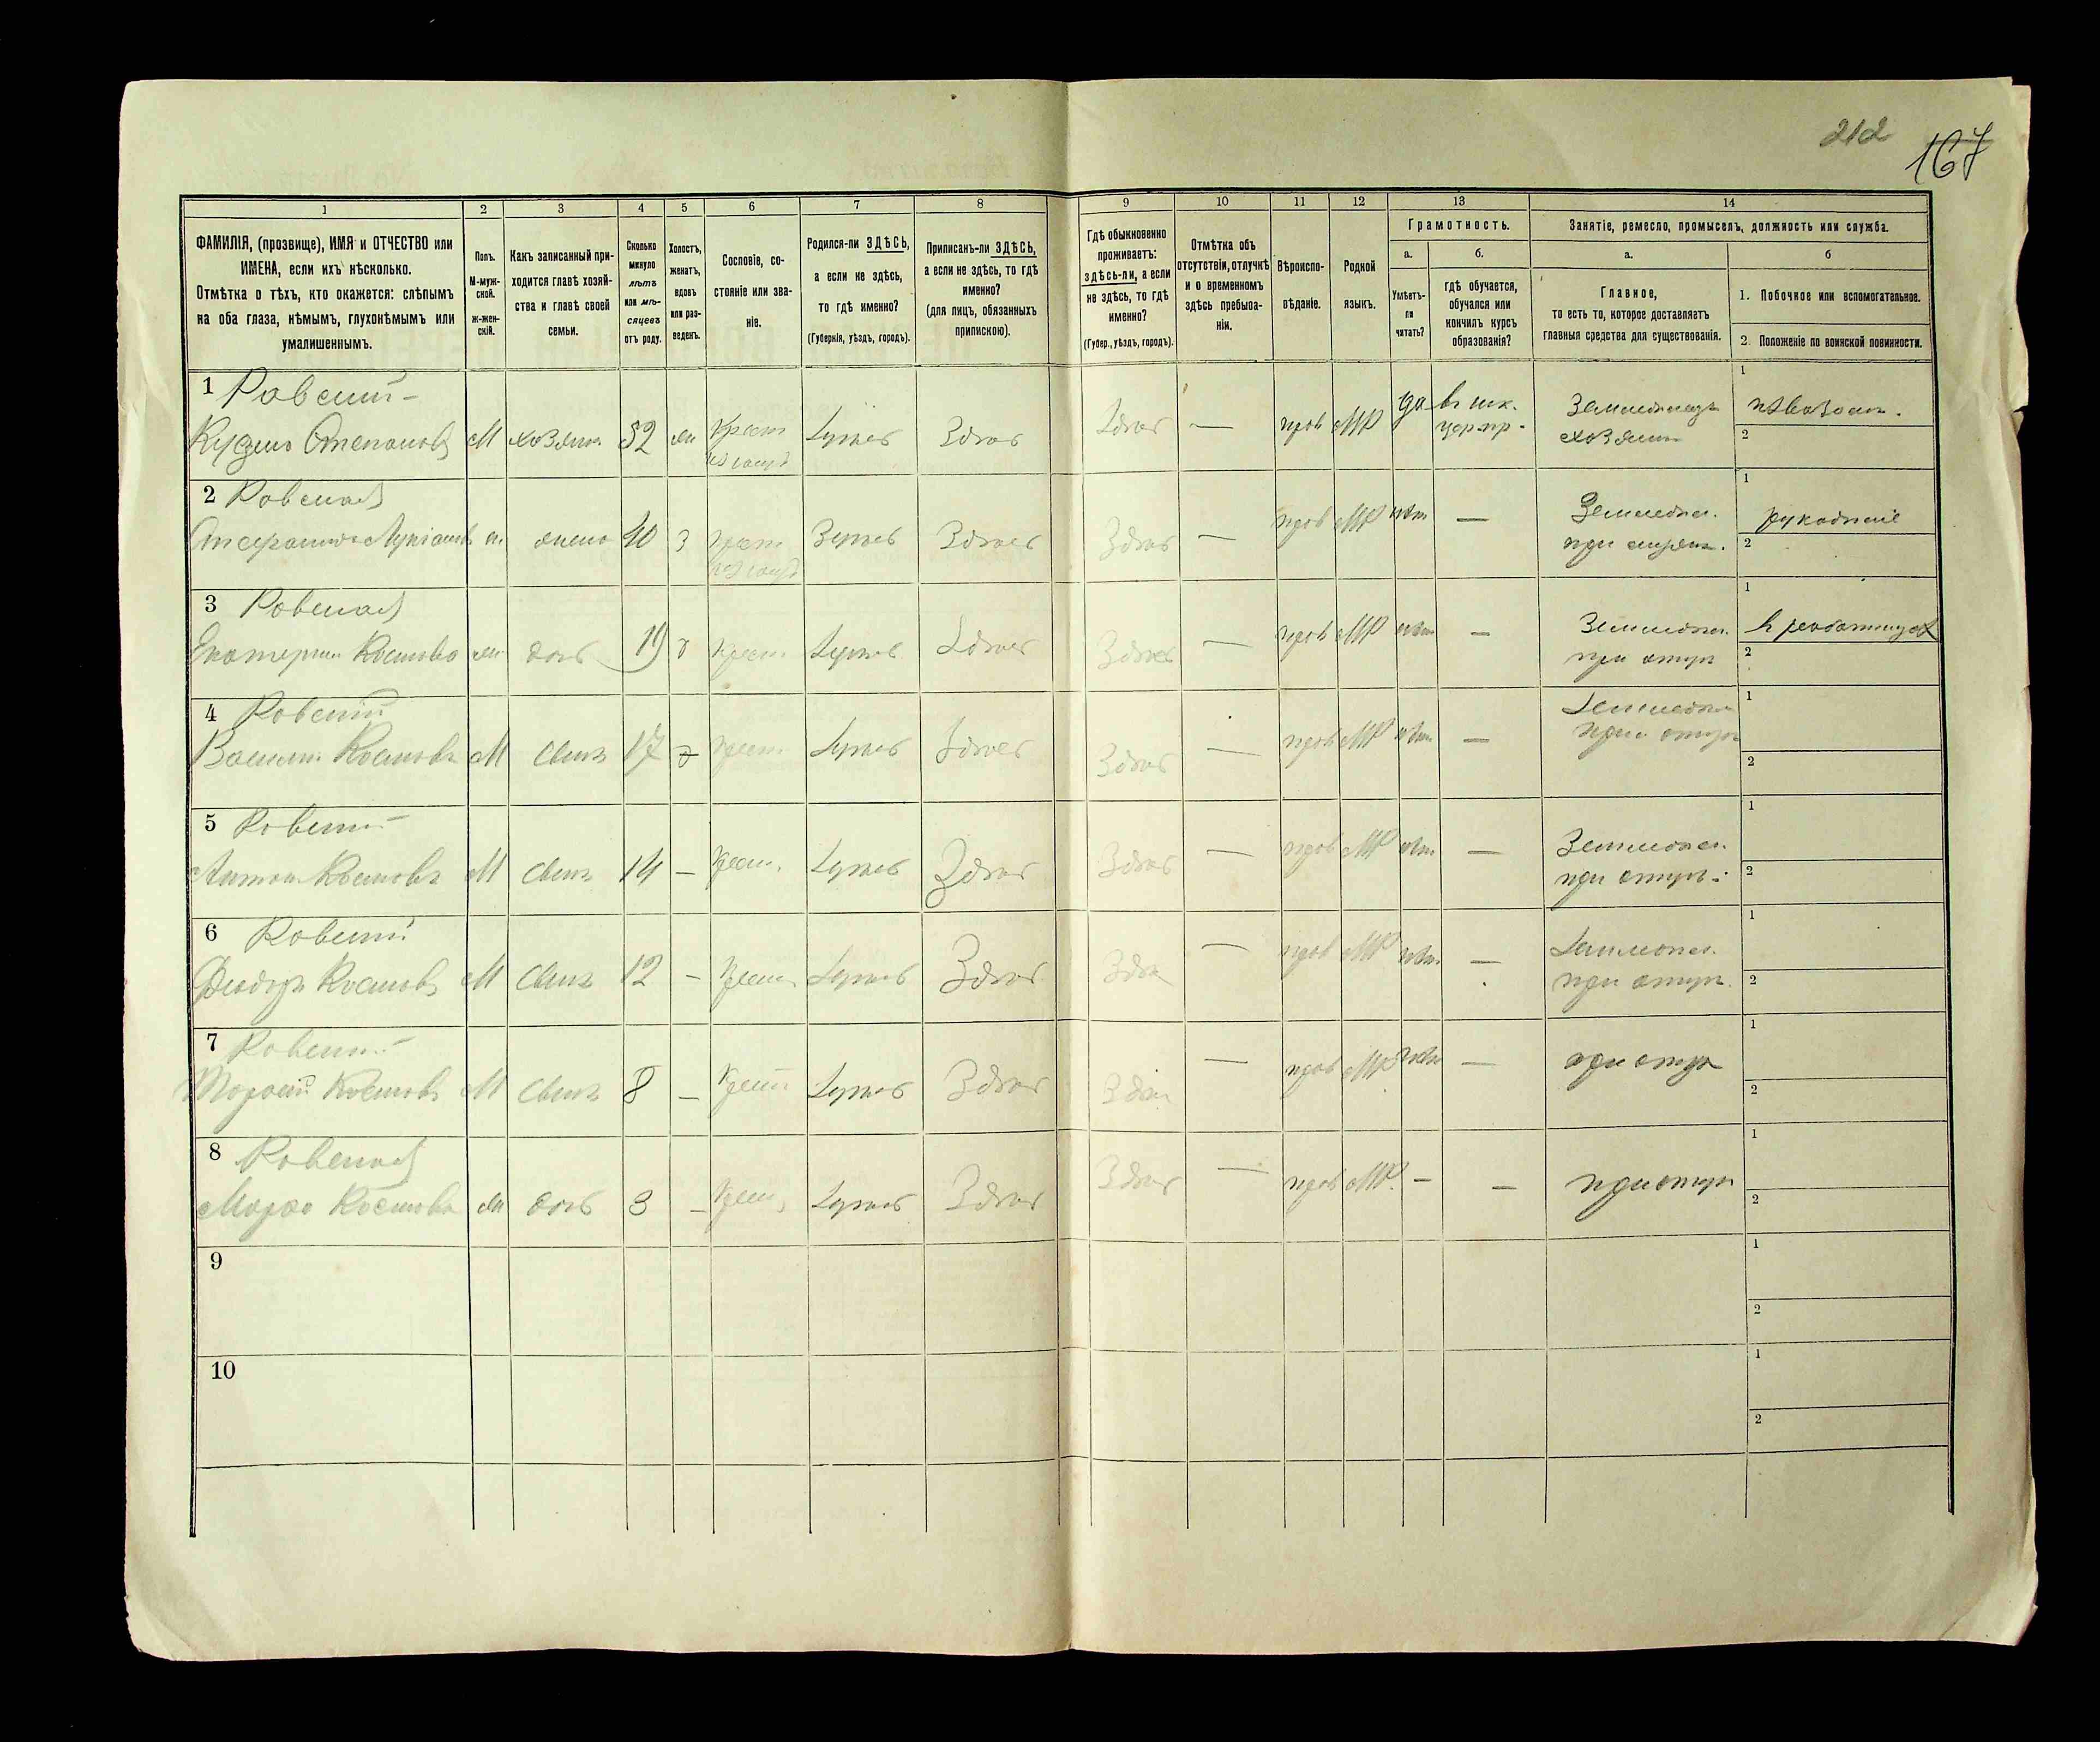 212
167
1 2 3 4 5 6 7 8 9 10 11 12 13 14
ФАМИЛІЯ, (прозвище), ИМЯ и ОТЧЕСТВО или
ИМЕНА, если ихъ нѣсколько.
Отмѣтка о тѣхъ, кто окажется: слѣпымъ
на оба глаза, нѣмымъ, глухонѣмымъ или
умалишеннымъ.
Полъ.
М-муж-
ской.
ж-жен-
скій.
Какъ записанный при-
ходится главѣ хозяй-
ства и главѣ своей
семьи.
Сколько
минуло
лѣтъ
или мѣ-
сяцевъ
отъ роду.
Холостъ,
женатъ,
вдовъ
или раз-
веденъ.
Сословіе, со-
стояніе или зва-
ніе.
Родился-ли ЗДѢСЬ,
а если не здѣсь,
то гдѣ именно?
(Губернія, уѣздъ, городъ).
Приписанъ-ли ЗДѢСЬ,
а если не здѣсь, то гдѣ
именно?
(для лицъ, обязанныхъ
припискою).
Гдѣ обыкновенно
проживаетъ:
здѣсь-ли, а если
не здѣсь, то гдѣ
именно?
(Губер., уѣздъ, городъ).
Отмѣтка объ
отсутствіи, отлучкѣ
и о временномъ
здѣсь пребыва-
ніи.
Вѣроиспо-
вѣданіе.
Родной
языкъ.
Грамотность.
а.
Умѣетъ-
ли
читать?
б.
гдѣ обучается,
обучался или
кончилъ курсъ
образованія?
Занятіе, ремесло, промыселъ, должность или служба.
а.
Главное,
то есть то, которое доставляетъ
главныя средства для существованія.
б
1. Побочное или вспомогательное.
2. Положеніе по воинской повинности.
1 Ровскій
Кузьма Степановъ М хозяин. 52 жн Крест Здѣсь Здѣсь Здѣсь — прав МР да в шк. Земледѣлецъ извозом.
цер-пр. хозяин
2 Ровская
жена 40 з крест Здѣсь Здѣсь Здѣсь — прав МР нѣт — Земледѣл. рукодѣліе
при
3 Ровская
Екатерина Космова жн дочь 19 крест Здѣсь Здѣсь Здѣсь — прав МР нѣт — Земледѣл.
при отцѣ
4 Ровскій
Василій Космовъ М сынъ 17 крест Здѣсь Здѣсь Здѣсь — прав МР нѣт — Земледѣл
при отцѣ
5 Ровскій
Антон Космовъ М сынъ 14 — крест. Здѣсь Здѣсь Здѣсь — прав МР нѣт — Земледѣл.
при отцѣ
6 Ровскій
Феодоръ Космовъ М сынъ 12 — крест Здѣсь Здѣсь Здѣсь — прав МР нѣт — Земледѣл.
при отцѣ
7 Ровскій
Космовъ М сынъ 8 — крест Здѣсь Здѣсь Здѣсь — прав МР нѣт — при отцѣ
8 Ровская
Космова жн дочь 3 — крест Здѣсь Здѣсь Здѣсь — прав МР. — — при отцѣ
9
10